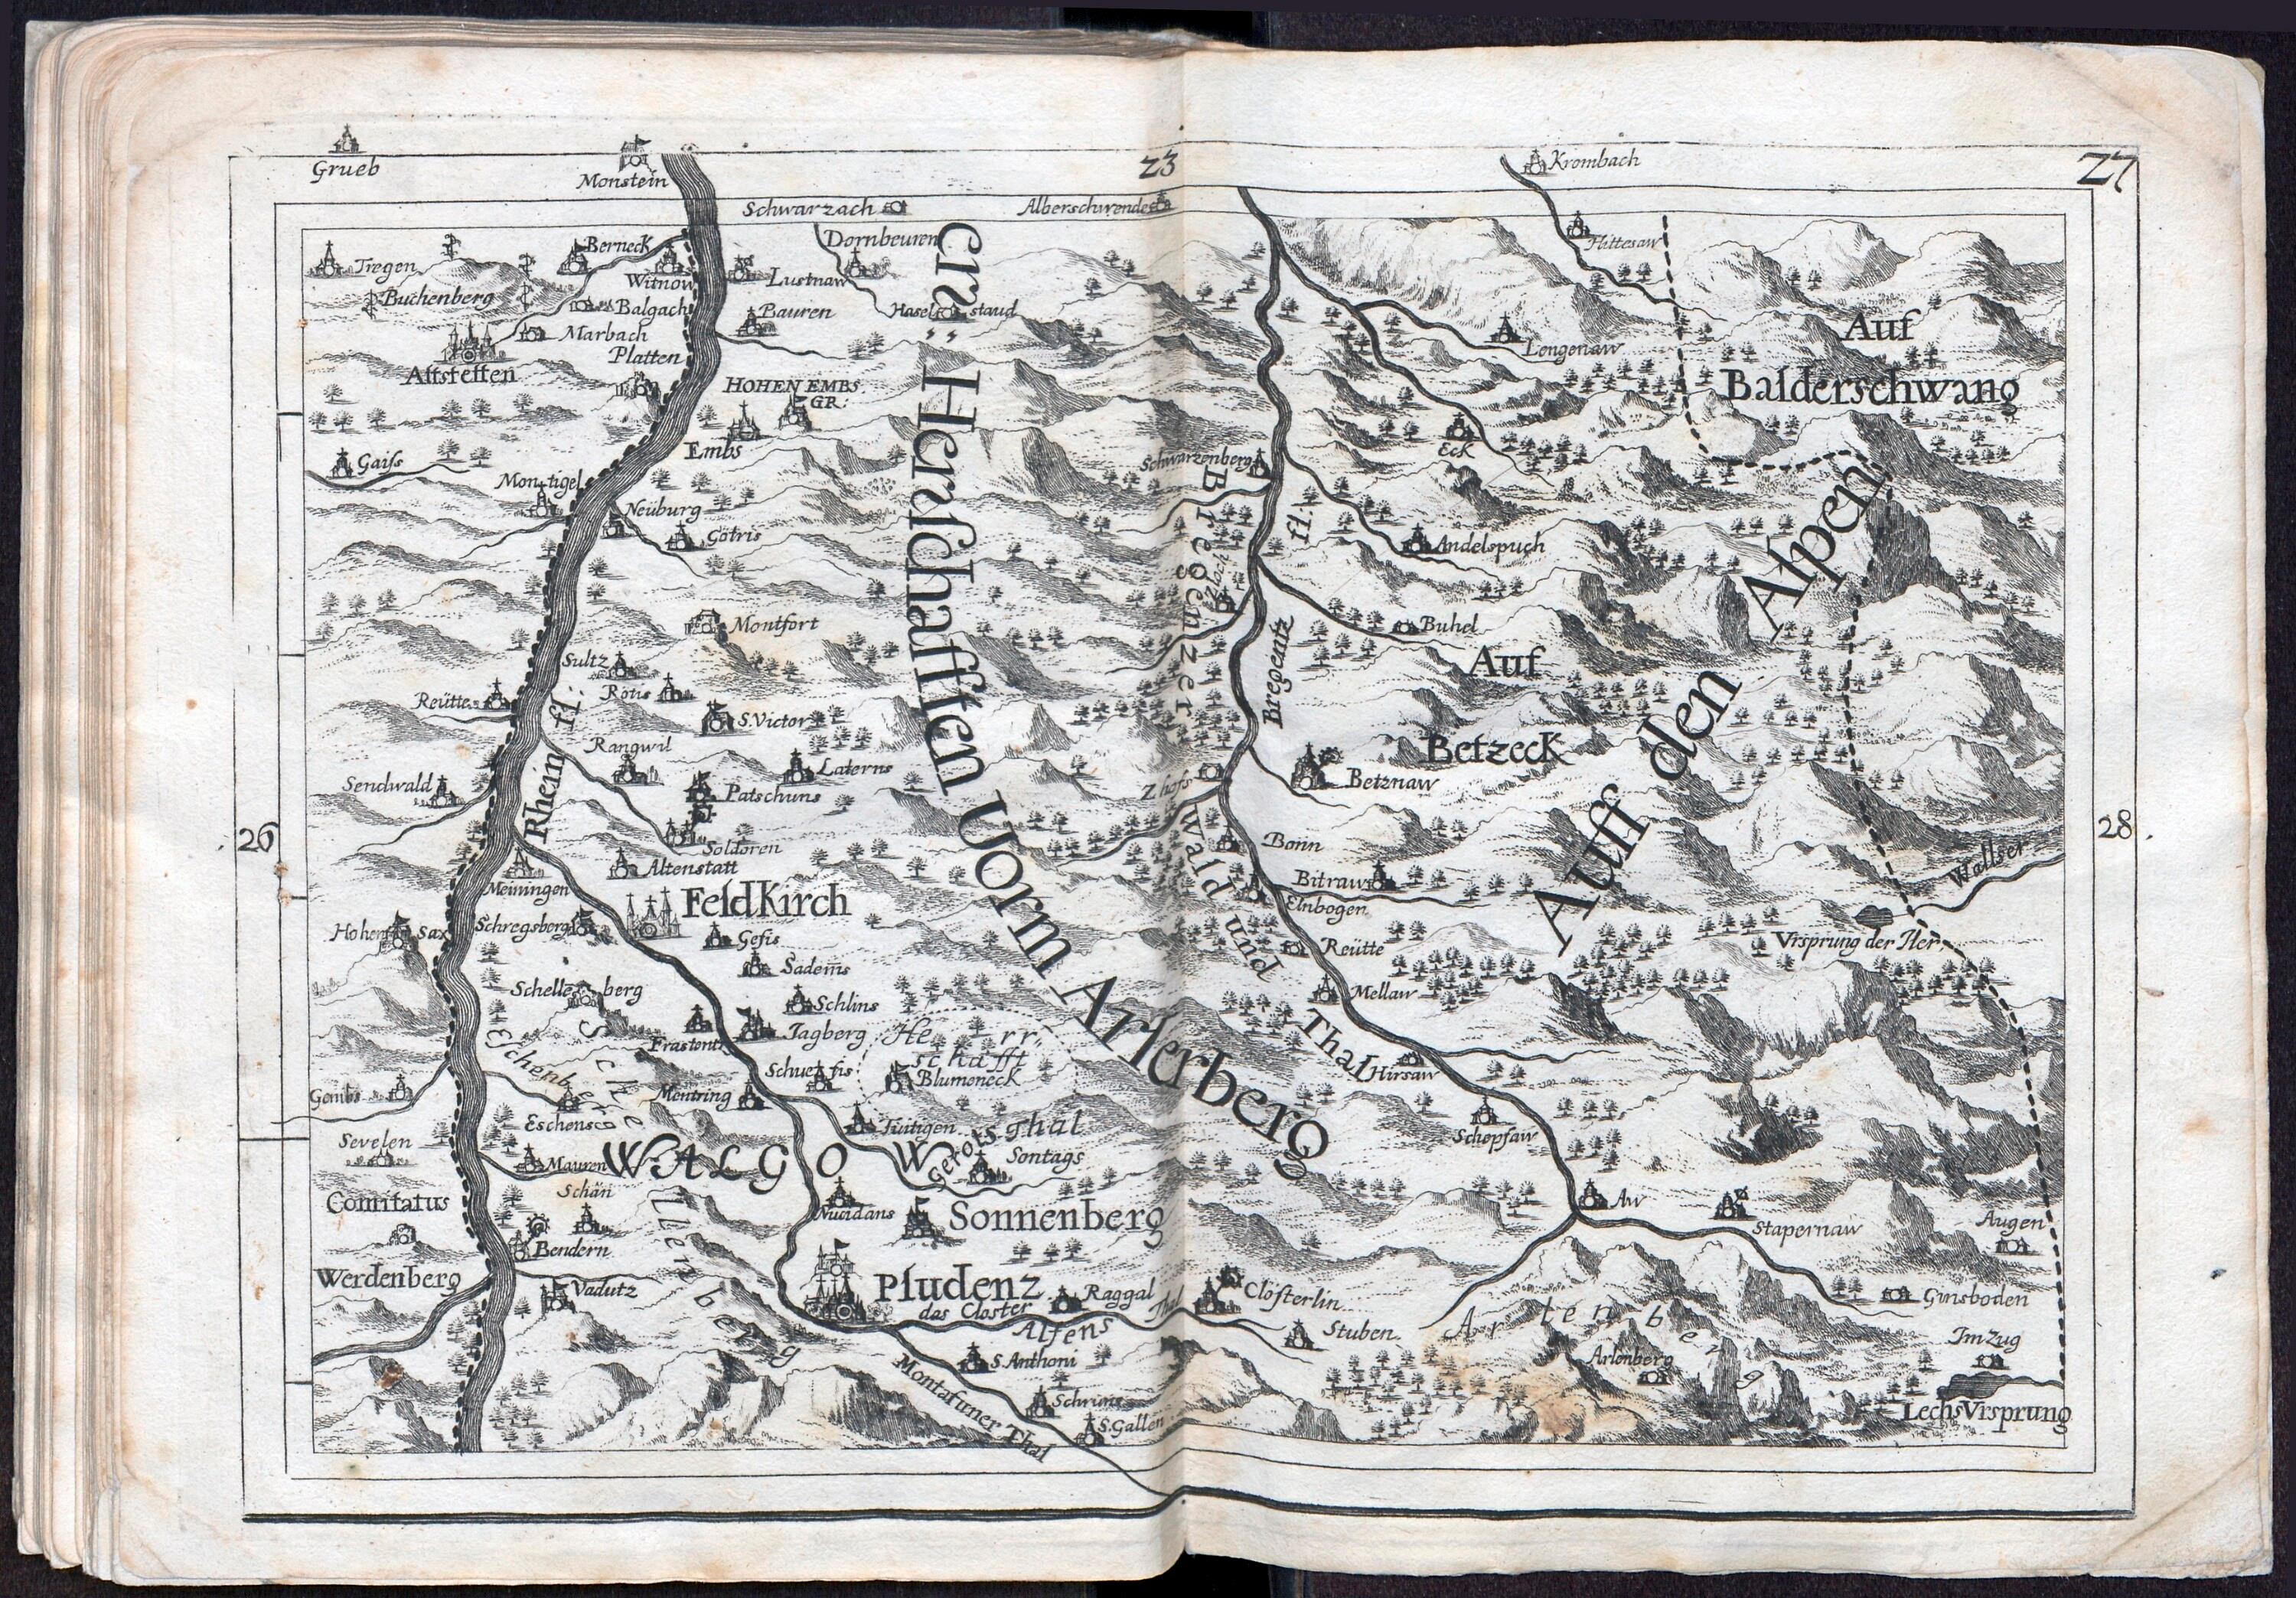 Grueb
Monstein
23
Krombach
27
Schwarzach
Alberschwende
Tregen
Berneck
Witnow
Dornbeuren
Lustnaw
Hittesaw
Buchenberg
Balgach
Bauren
Hasel staud
Marbach
Platten
Altstetten
Longenaw
Auf
Balderschwang
HOHEN EMBS
GR:
Embs
Eck
Gaiss
Schwarzenberg
Montigel
Neüburg
Götris
Andelspuch
Montfort
Buhel
Sultz
Rötis
Reütte
S. Victor
Auf
Betzeck
Rangwil
Laterns
Sendwald
Patschuns
Betznaw
Rhein fl:
Bregentz fl:
Soldoren
Altenstatt
Bonn
26
28.
Wallser
Meiningen
Feldkirch
Bitraw
Elnbogen
Hohen Sax
Schregsberg
Gefis
Reütte
Vrsprung der Iler
Sadems
Schellenberg
Schlins
Mellaw
Frastentz
Jagberg
Herrschafft
Blumeneck
Hirsaw
Gembs
Mentring
Eschensee
Tüitigen
Schopfaw
Sevelen
Mauren
WALGOW
Gerots Thal
Sontags
Comitatus
Werdenberg
Schän
Bendern
Sonnenberg
Aw
Stapernaw
Augen
Vadutz
Pludenz
das Closter
Raggal
Thal
Clösterlin
Ginsboden
Alfens
Stuben
Arlenberg
Arlenberg
Im Zug
S. Anthoni
Montafuner Thal
Schruns
S. Gallen
Lechs Vrsprung
ern Herrschafften Vorm Arlerberg
Bregenzer Wald und Thal
Auff den Alpen